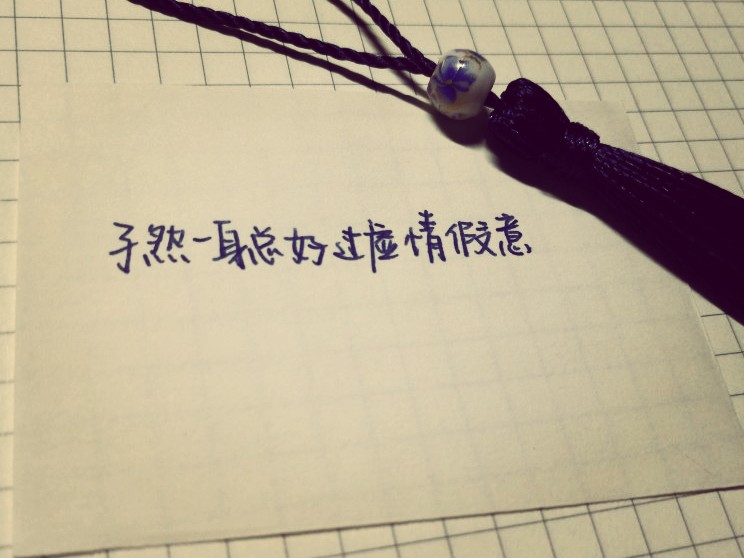 孑然一身总好过虚情假意